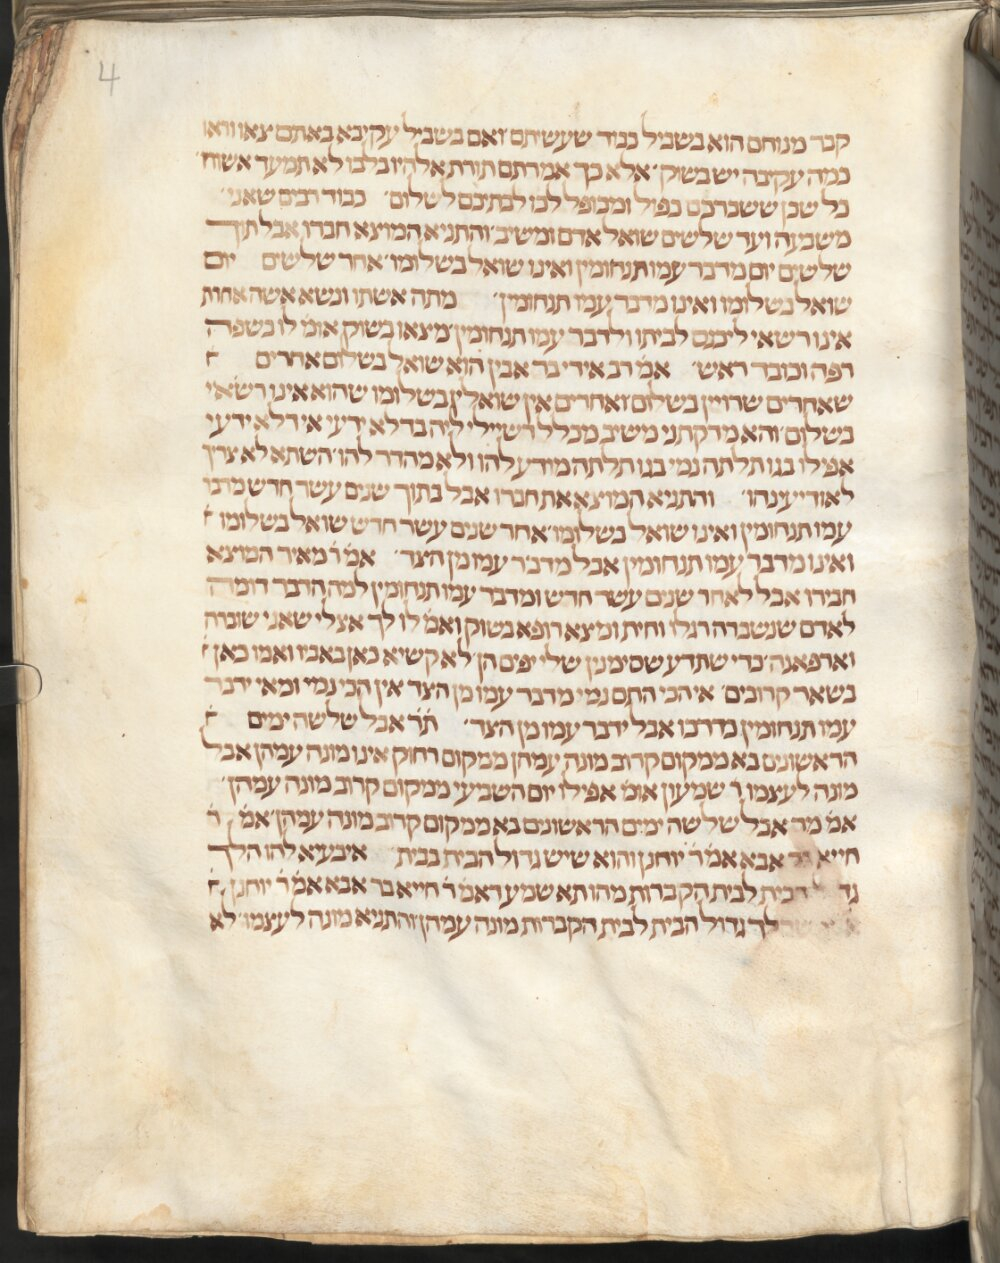 4
קבר מנוחם הוא בשביל כבוד שעשיתם ׳ואם בשביל עקיבא באתם יצאו וראו
כמה עקיבה יש בשוק׳ אלא כך אמרתם תורת אלהיו בלבו לא תמעד אשוח׳
כל שכן ששכרכם כפול ומכופל לכו לבתיכם לשלום׳ כבוד רבים שאני׳
משבעה ועד שלשים שואל אדם ומשיב׳ והתניא המוצא חברו אבל תוך
שלשים יום מדבר עמו תנחומין ואינו שואל בשלומו׳ אחר שלשים יום
שואל בשלומו ואינו מדבר עמו תנחומין׳ מתה אשתו ונשא אשה אחות
אינו רשאי ליכנס לביתו ולדבר עמו תנחומין׳ מיצאו בשוק אומ׳ לו בשפה
רפה וכובד ראש׳ אמ׳ רב אידי בר אבין הוא שואל בשלום אחרים
שאחרים שרויין בשלום׳ ואחרים אין שואלין בשלומו שהוא אינו רשאי
בשלום׳ והא מדקתני משיב מכלל דשיילי ליה בדלא ידעי אי דלא ידעי
אפילו בגו תלתה נמי בגו תלתה מודע להו ולא מהדר להו׳ השתא לא צריך
לאודיעינהו׳ והתניא המוצא את חברו אבל בתוך שנים עשר חדש מדבר
עמו תנחומין ואינו שואל בשלומו׳ אחר שנים עשר חדש שואל בשלומו
ואינו מדבר עמו תנחומין אבל מדבר עמו מן הצד׳ אמ׳ ר׳ מאיר המוצא
חבירו אבל לאחר שנים עשר חדש ומדבר עמו תנחומין למה הדבר דומה
לאדם שנשברה רגלו וחית ומצא רופא בשוק ואמ׳ לו לך אצלי שאני שוברה
וארפאנה׳ כדי שתדע שסימנין שלי יפים הן׳ לא קשיא כאן באביו ואמו כאן
בשאר קרובים׳ אי הכי התם נמי מדבר עמו מן הצד אין הכי נמי ומאי ידבר
עמו תנחומין כדרכו אבל ידבר עמו מן הצד׳ ת׳ר אבל שלשה ימים
הראשונים בא ממקום קרוב מונה עמהן ממקום רחוק אינו מונה עמהן אבל
מונה לעצמו ר׳ שמעון אומ׳ אפילו יום השביעי ממקום קרוב מונה עמהן׳
אמ׳ מר אבל שלשה ימים הראשונים בא ממקום קרוב מונה עמהן׳ אמ׳ ר׳
חייא בר אבא אמ׳ ר׳ יוחנן והוא שיש גדול הבית בבית׳ איבעיא להו הלך
הבית לבית הקברות מהו תא שמע דאמ׳ ר׳ חייא בר אבא אמ׳ ר׳ יוחנן
הלך גדול הבית לבית הקברות מונה עמהן והתניא מונה לעצמו׳ לא